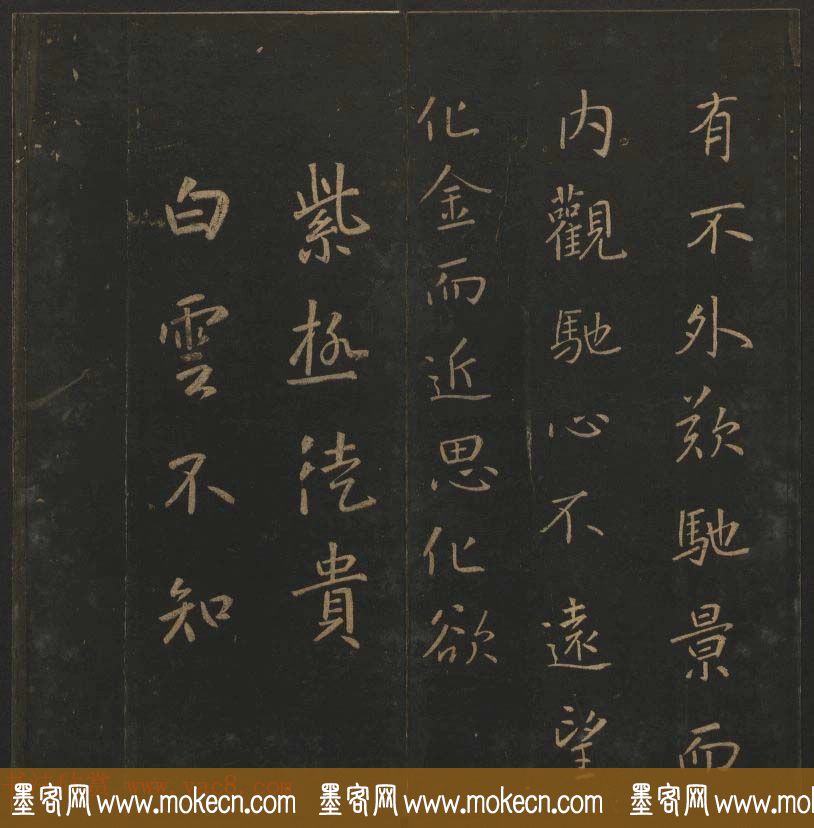 有不外欺馳景而
内觀馳心不遠望
化金而近思化欲
紫極徒貴
白雲不知
墨客网 www.mokecn.com 墨客网 www.mokecn.com 墨客网 www.mokecn.com